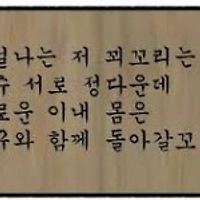 저 꾀꼬리는
수 서로 정다운데
로운 이내 몸은
함께 돌아갈꼬